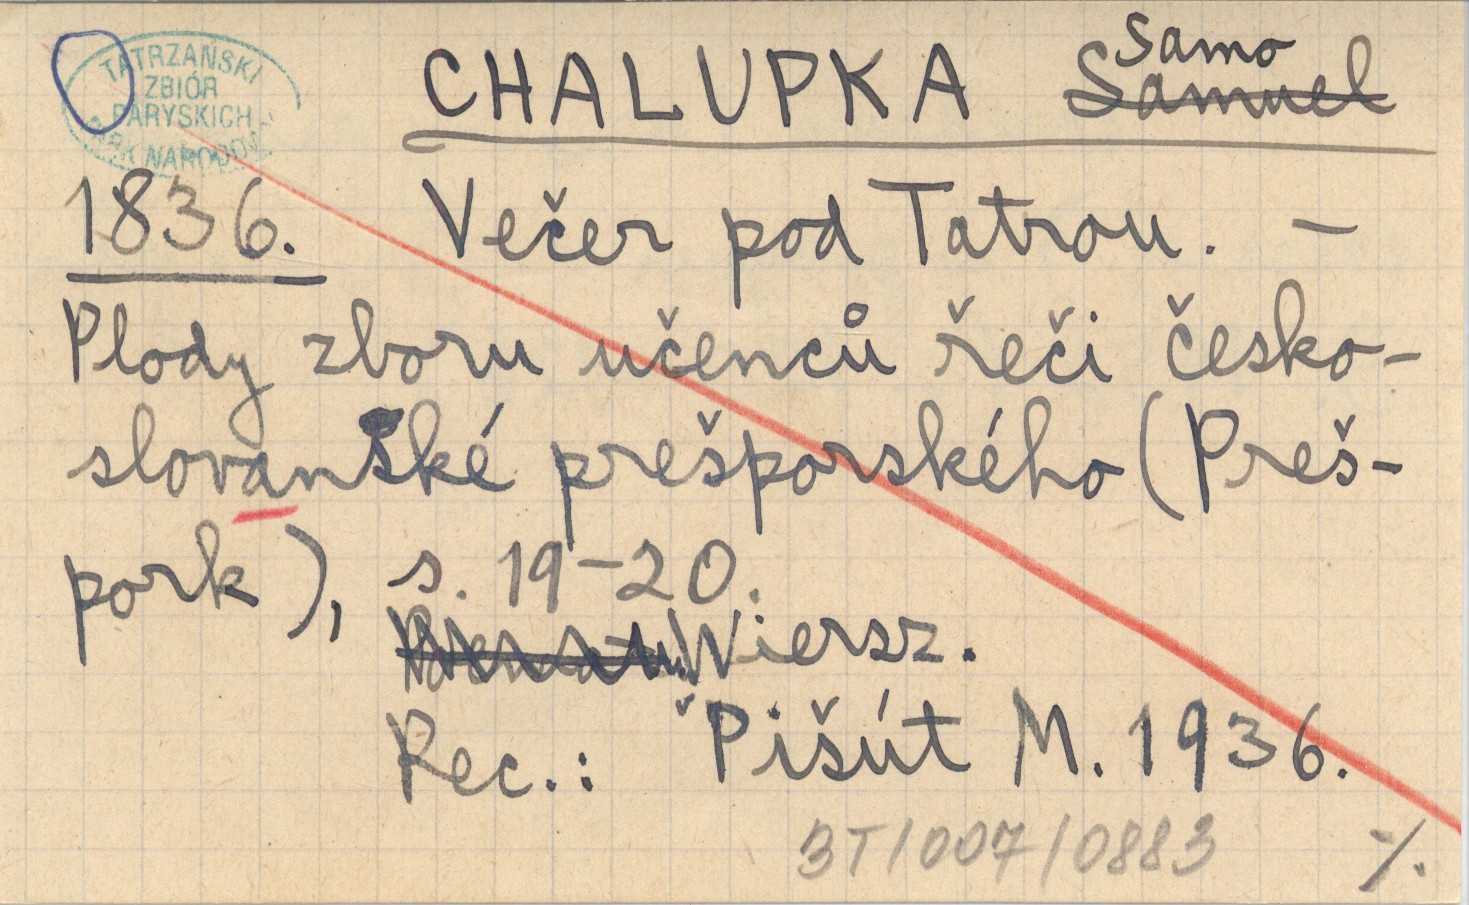 TATRZAŃSKI
ZBIÓR
PARYSKICH
PARK NARODOWY
CHALUPKA Samo
Samuel
1836. Večer pod Tatrou. –
Plody zboru učenců řeči česko-
slovanské prešporského (Preš-
pork), s. 19-20.
Wiersz.
Rec.: Pišút M. 1936.
3T/007/0883 ./.